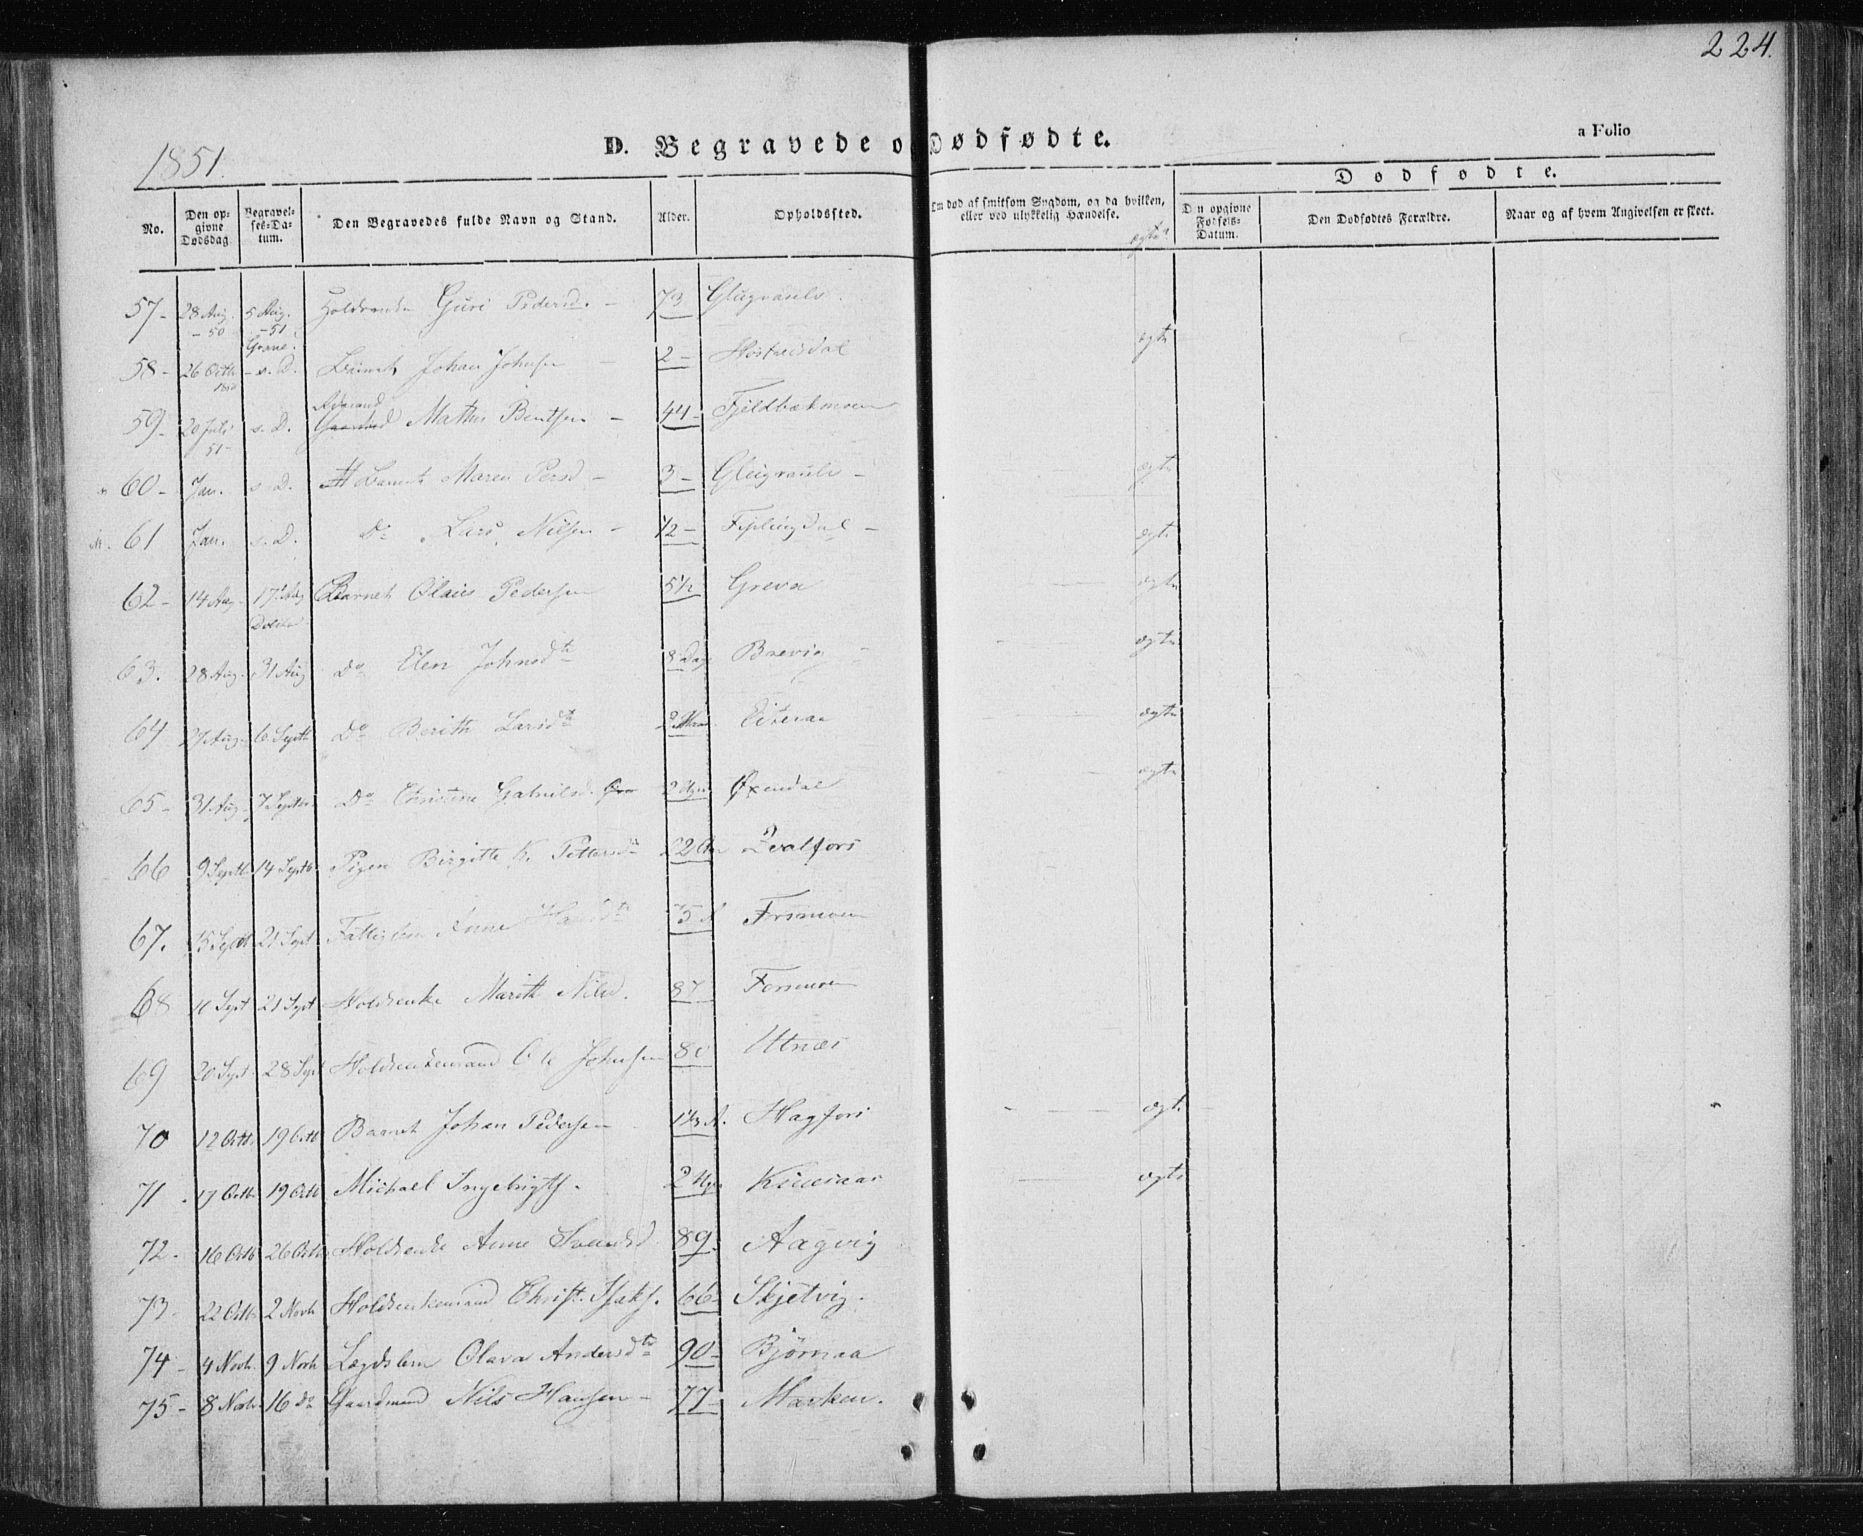 224.
1851.
D. Begravede o Dødfødte.
a Folio
No.
Den opgivne Dødsdag
Begravelses-Datum.
Den Begravedes fulde Navn og Stand.
Alder.
Opholdssted.
Om død af smitsom Sygdom, og da hvilken, eller ved ulykkelig Hændelse.
Dødfødte.
Den opgivne Fødsels-Datum.
Den Dødfødtes Forældre.
Naar og af hvem Angivelsen er skeet.
57- 28 Aug. -50 5 Aug. -51 Guri Pedersd. - 73
58- 26 Octb. 1850 s. D. Barnet Johan Johnsen - 2- ægte
59- 20 Juli 51- s. D. Mathis Bentsen - 44- Fjeldbækmoen
60- Jan. s. D. Barnet Maren Persd - 3- ægte
61 Jan. s. D. Do Lars Nilsen - 1/2 - Fiplingdal - ægte
62- 14 Aug. 17 Aug Barnet Olaus Pedersen 5 1/2 Greva ægte
63. 28 Aug. 31 Aug Do Elen Johnsdtr 8 Dag Brevig ægte
64 27 Aug. 6 Septb Do Berith Larsdtr 2 Eiteraa ægte
65- 31 Aug. 7 Septbr. Do Christine Gabrielsd. 2 Uger Øxendal ægte
66 9 Septb 14 Septb. Pigen Birgitte K. Pettersdtr 22 Aar Svalfors
67. 15 Septb 21 Sept Fattiglem Anne 75 A Forsmoen
68 11 Sept 21 Sept Holdsenke Marith Nilsd. 87 Forsmoen
69 20 Sept. 28 Sept Holdsenkemand Ole Johnsen 80 Utnæs
70 12 Octb. 19 Octb Barnet Johan Pedersen 1 1/3 A. Hagfors ægte
71 . 17 Octb. 19 Octb Michael Ingebrigts. 2 Uger ægte
72- 16 Octb 26 Octb Holdsenke Anne Svendsd 89. Aagvig
73- 22 Octb 2 Novb. Holdsenkemand Christ. Isaks. 66- Skjetvig.
74- 4 Novb. 9 Novb. Lægdslem Olava Andersdtr 90- Bjørnaa
75- 8 Novb. 16 Do Gaardmand Nils Hansen - 77- Marken.